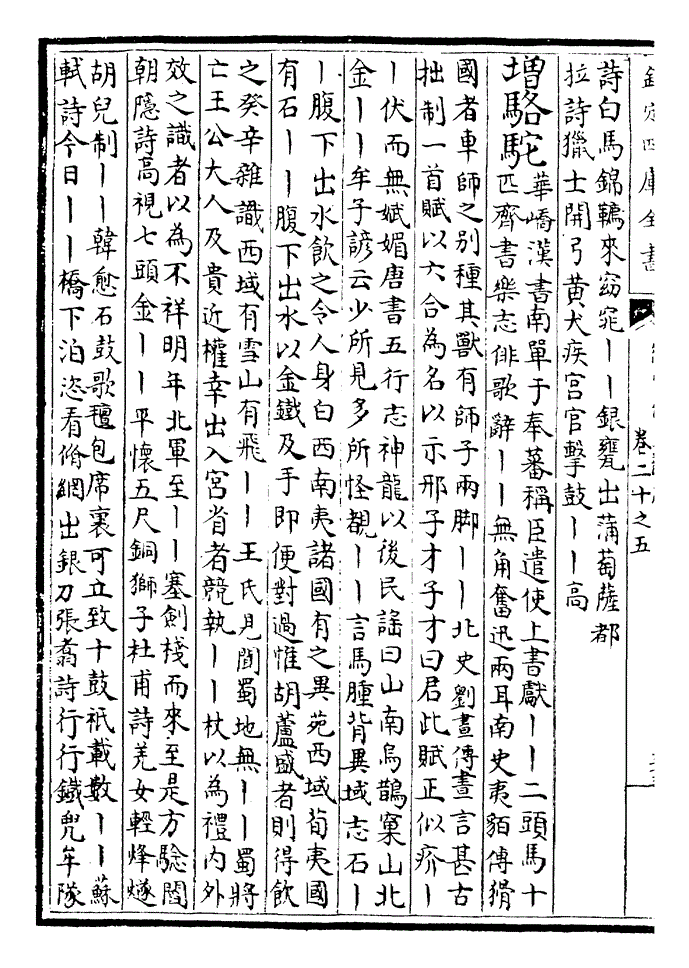 欽定四庫全書
卷二十之五
詩白馬錦韉來窈窕丨丨銀甕出蒲萄薩都
拉詩獵士開弓黄犬疾宫官擊鼓丨丨高
增駱駝華嶠漢書南單于奉蕃稱臣遣使上書獻丨丨二頭馬十
匹齊書樂志俳歌辭丨丨無角奮迅兩耳南史夷貊傳滑
國者車師之别種其獸有師子兩脚丨丨北史劉晝傳晝言甚古
拙制一首賦以六合為名以示邢子才子才曰君此賦正似疥丨
丨伏而無娬媚唐書五行志神龍以後民謡曰山南烏鵲窠山北
金丨丨牟子諺云少所見多所怪覩丨丨言馬腫背異域志石丨
丨腹下出水飲之令人身白西南夷諸國有之異苑西域茍夷國
有石丨丨腹下出水以金鐵及手即便對過惟胡蘆盛者則得飲
之癸辛雜識西域有雪山有飛丨丨王氏見聞蜀地無丨丨蜀將
亡王公大人及貴近權幸出入宫省者競執丨丨杖以為禮内外
效之識者以為不祥明年北軍至丨丨塞劍棧而來至是方驗閻
朝隱詩高視七頭金丨丨平懷五尺銅獅子杜甫詩羌女輕烽燧
胡兒制丨丨韓愈石鼓歌氊包席裹可立致十鼓祇載數丨丨蘇
軾詩今日丨丨橋下泊恣看脩網出銀刀張翥詩行行鐵兜牟隊